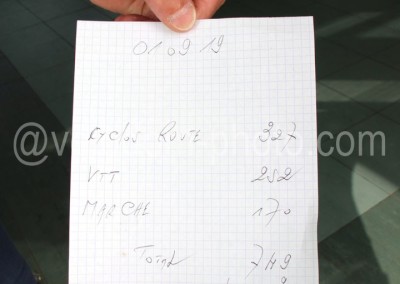 01 09 19
Cyclos Route 327
VTT 252
MARCHE 170
Total 749